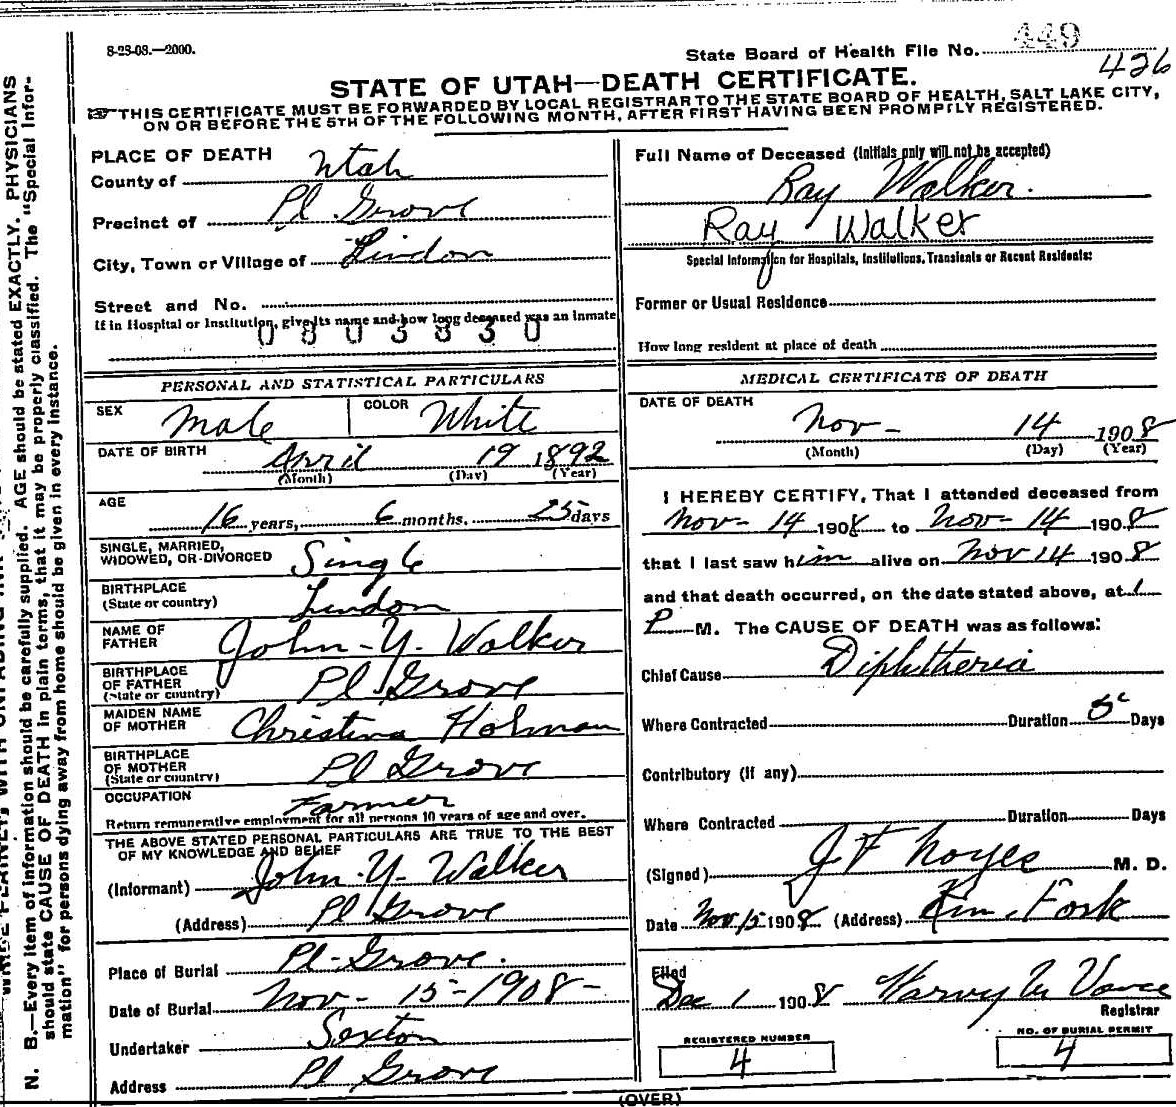 8-23-08.—2000.
State Board of Health File No. 449
426
STATE OF UTAH—DEATH CERTIFICATE.
THIS CERTIFICATE MUST BE FORWARDED BY LOCAL REGISTRAR TO THE STATE BOARD OF HEALTH, SALT LAKE CITY,
ON OR BEFORE THE 5TH OF THE FOLLOWING MONTH, AFTER FIRST HAVING BEEN PROMPTLY REGISTERED.
N. B.—Every item of information should be carefully supplied. AGE should be stated EXACTLY. PHYSICIANS
should state CAUSE OF DEATH in plain terms, that it may be properly classified. The "Special Infor-
mation" for persons dying away from home should be given in every instance.
PLACE OF DEATH
County of Utah
Precinct of Pl Grove
City, Town or Village of Lindon
Street and No.
If in Hospital or Institution, give its name and how long deceased was an inmate
0803830
PERSONAL AND STATISTICAL PARTICULARS
SEX Male COLOR White
DATE OF BIRTH April 19 1892
(Month) (Day) (Year)
AGE 16 years, 6 months, 25 days
SINGLE, MARRIED,
WIDOWED, OR DIVORCED Single
BIRTHPLACE
(State or country) Lindon
NAME OF
FATHER John Y. Walker
BIRTHPLACE
OF FATHER
(State or country) Pl Grove
MAIDEN NAME
OF MOTHER Christina Holman
BIRTHPLACE
OF MOTHER
(State or country) Pl Grove
OCCUPATION Farmer
Return remunerative employment for all persons 10 years of age and over.
THE ABOVE STATED PERSONAL PARTICULARS ARE TRUE TO THE BEST
OF MY KNOWLEDGE AND BELIEF
(Informant) John Y. Walker
(Address) Pl Grove
Place of Burial Pl-Grove.
Date of Burial Nov- 15-1908-
Undertaker Sexton
Address Pl Grove
Full Name of Deceased (Initials only will not be accepted)
Ray Walker.
Ray Walker
Special Information for Hospitals, Institutions, Transients or Recent Residents:
Former or Usual Residence
How long resident at place of death
MEDICAL CERTIFICATE OF DEATH
DATE OF DEATH
Nov- 14 1908
(Month) (Day) (Year)
I HEREBY CERTIFY, That I attended deceased from
Nov- 14 1908 to Nov- 14 1908
that I last saw him alive on Nov 14 1908
and that death occurred, on the date stated above, at 1
P M. The CAUSE OF DEATH was as follows:
Chief Cause Diphtheria
Where Contracted Duration 5 Days
Contributory (if any)
Where Contracted Duration Days
(Signed) J F Noyes M. D.
Date Nov 15 1908 (Address) Fork
Filed
Dec 1 1908 Vance
Registrar
REGISTERED NUMBER
4
NO. OF BURIAL PERMIT
4
(OVER)